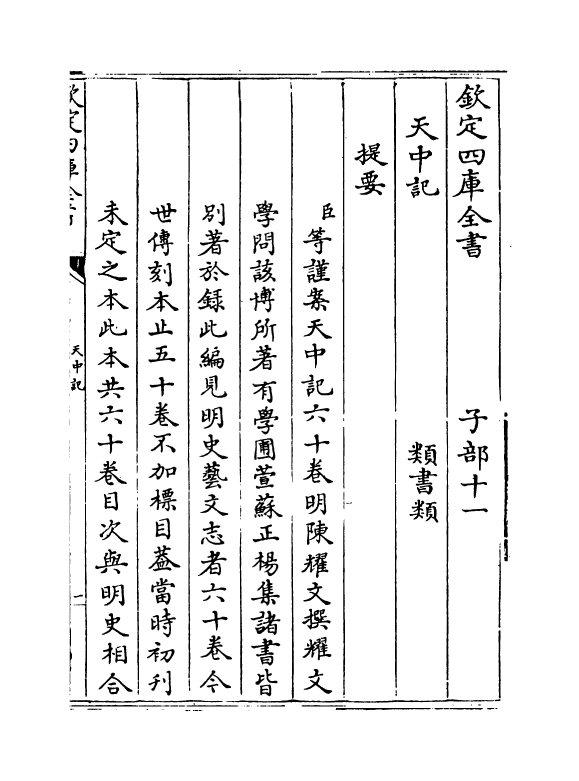 欽定四庫全書　子部十一
天中記　類書類
提要
臣等謹案天中記六十卷明陳耀文撰耀文
學問該博所著有學圃萱蘇正楊集諸書皆
別著於録此編見明史藝文志者六十卷今
世傳刻本止五十卷不加標目葢當時初刋
未定之本此本共六十卷目次與明史相合
欽定四庫全書
天中記
一